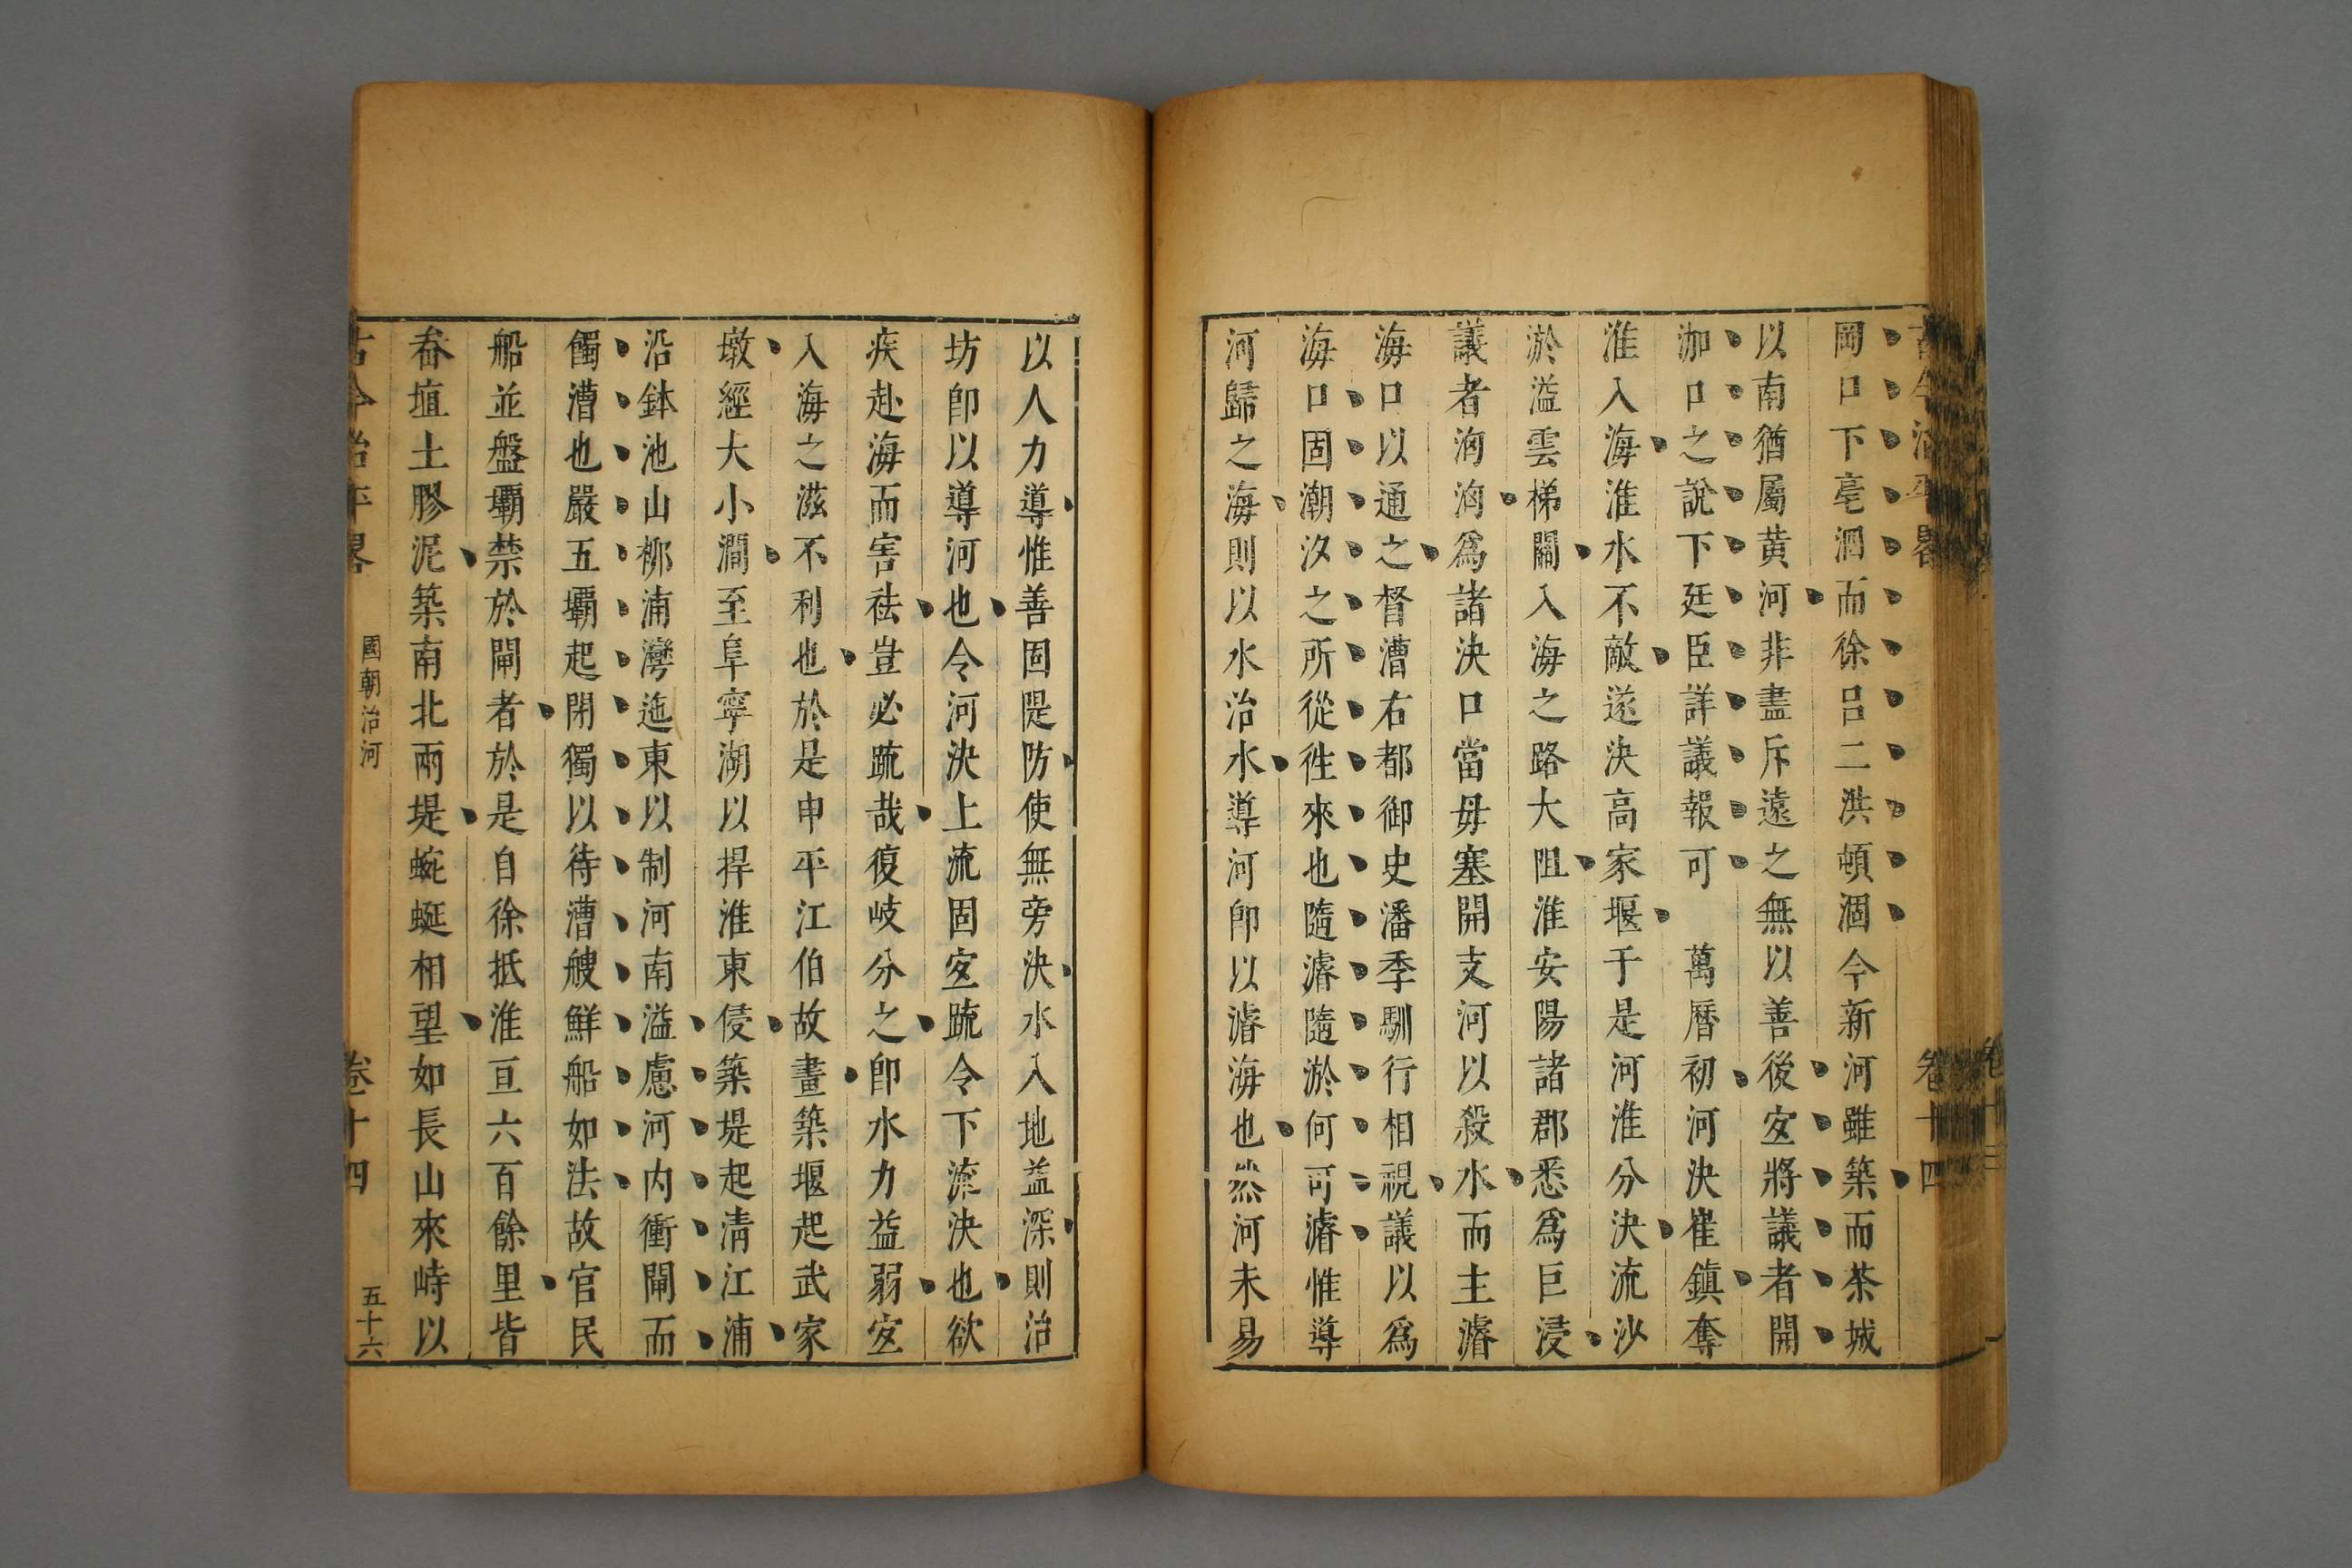 岡口下亳泗而徐呂二洪頓涸今新河雖築而茶城
以南猶屬黄河非盡斥遠之無以善後宜將議者開
泇口之說下廷臣詳議報可　萬曆初河決崔鎮奪
淮入海淮水不敵遂決高家堰于是河淮分決流沙
淤溢雲梯關入海之路大阻淮安陽諸郡悉爲巨浸
議者洶洶爲諸決口當毋塞開支河以殺水而主濬
海口以通之督漕右都御史潘季馴行相視議以爲
海口固潮汐之所從徃來也隨濬隨淤何可濬惟導
河歸之海則以水治水導河即以濬海也然河未易
以人力導惟善固隄防使無旁決水入地益深則治
坊即以導河也令河決上流固宜䟽令下流決也欲
疾赴海而害祛豈必䟽哉復岐分之即水力益弱宜
入海之滋不利也於是申平江伯故畫築堰起武家
墩經大小澗至阜寧湖以捍淮東侵築堤起清江浦
沿鉢池山栁浦灣迤東以制河南溢慮河内衝閘而
髑漕也嚴五壩起閉獨以待漕艘鮮船如法故官民
船並盤壩禁於閘者於是自徐抵淮亘六百餘里皆
畚埴土膠泥築南北兩堤蜿蜒相望如長山來峙以
古今治平畧　國朝治河　卷十四　五十六